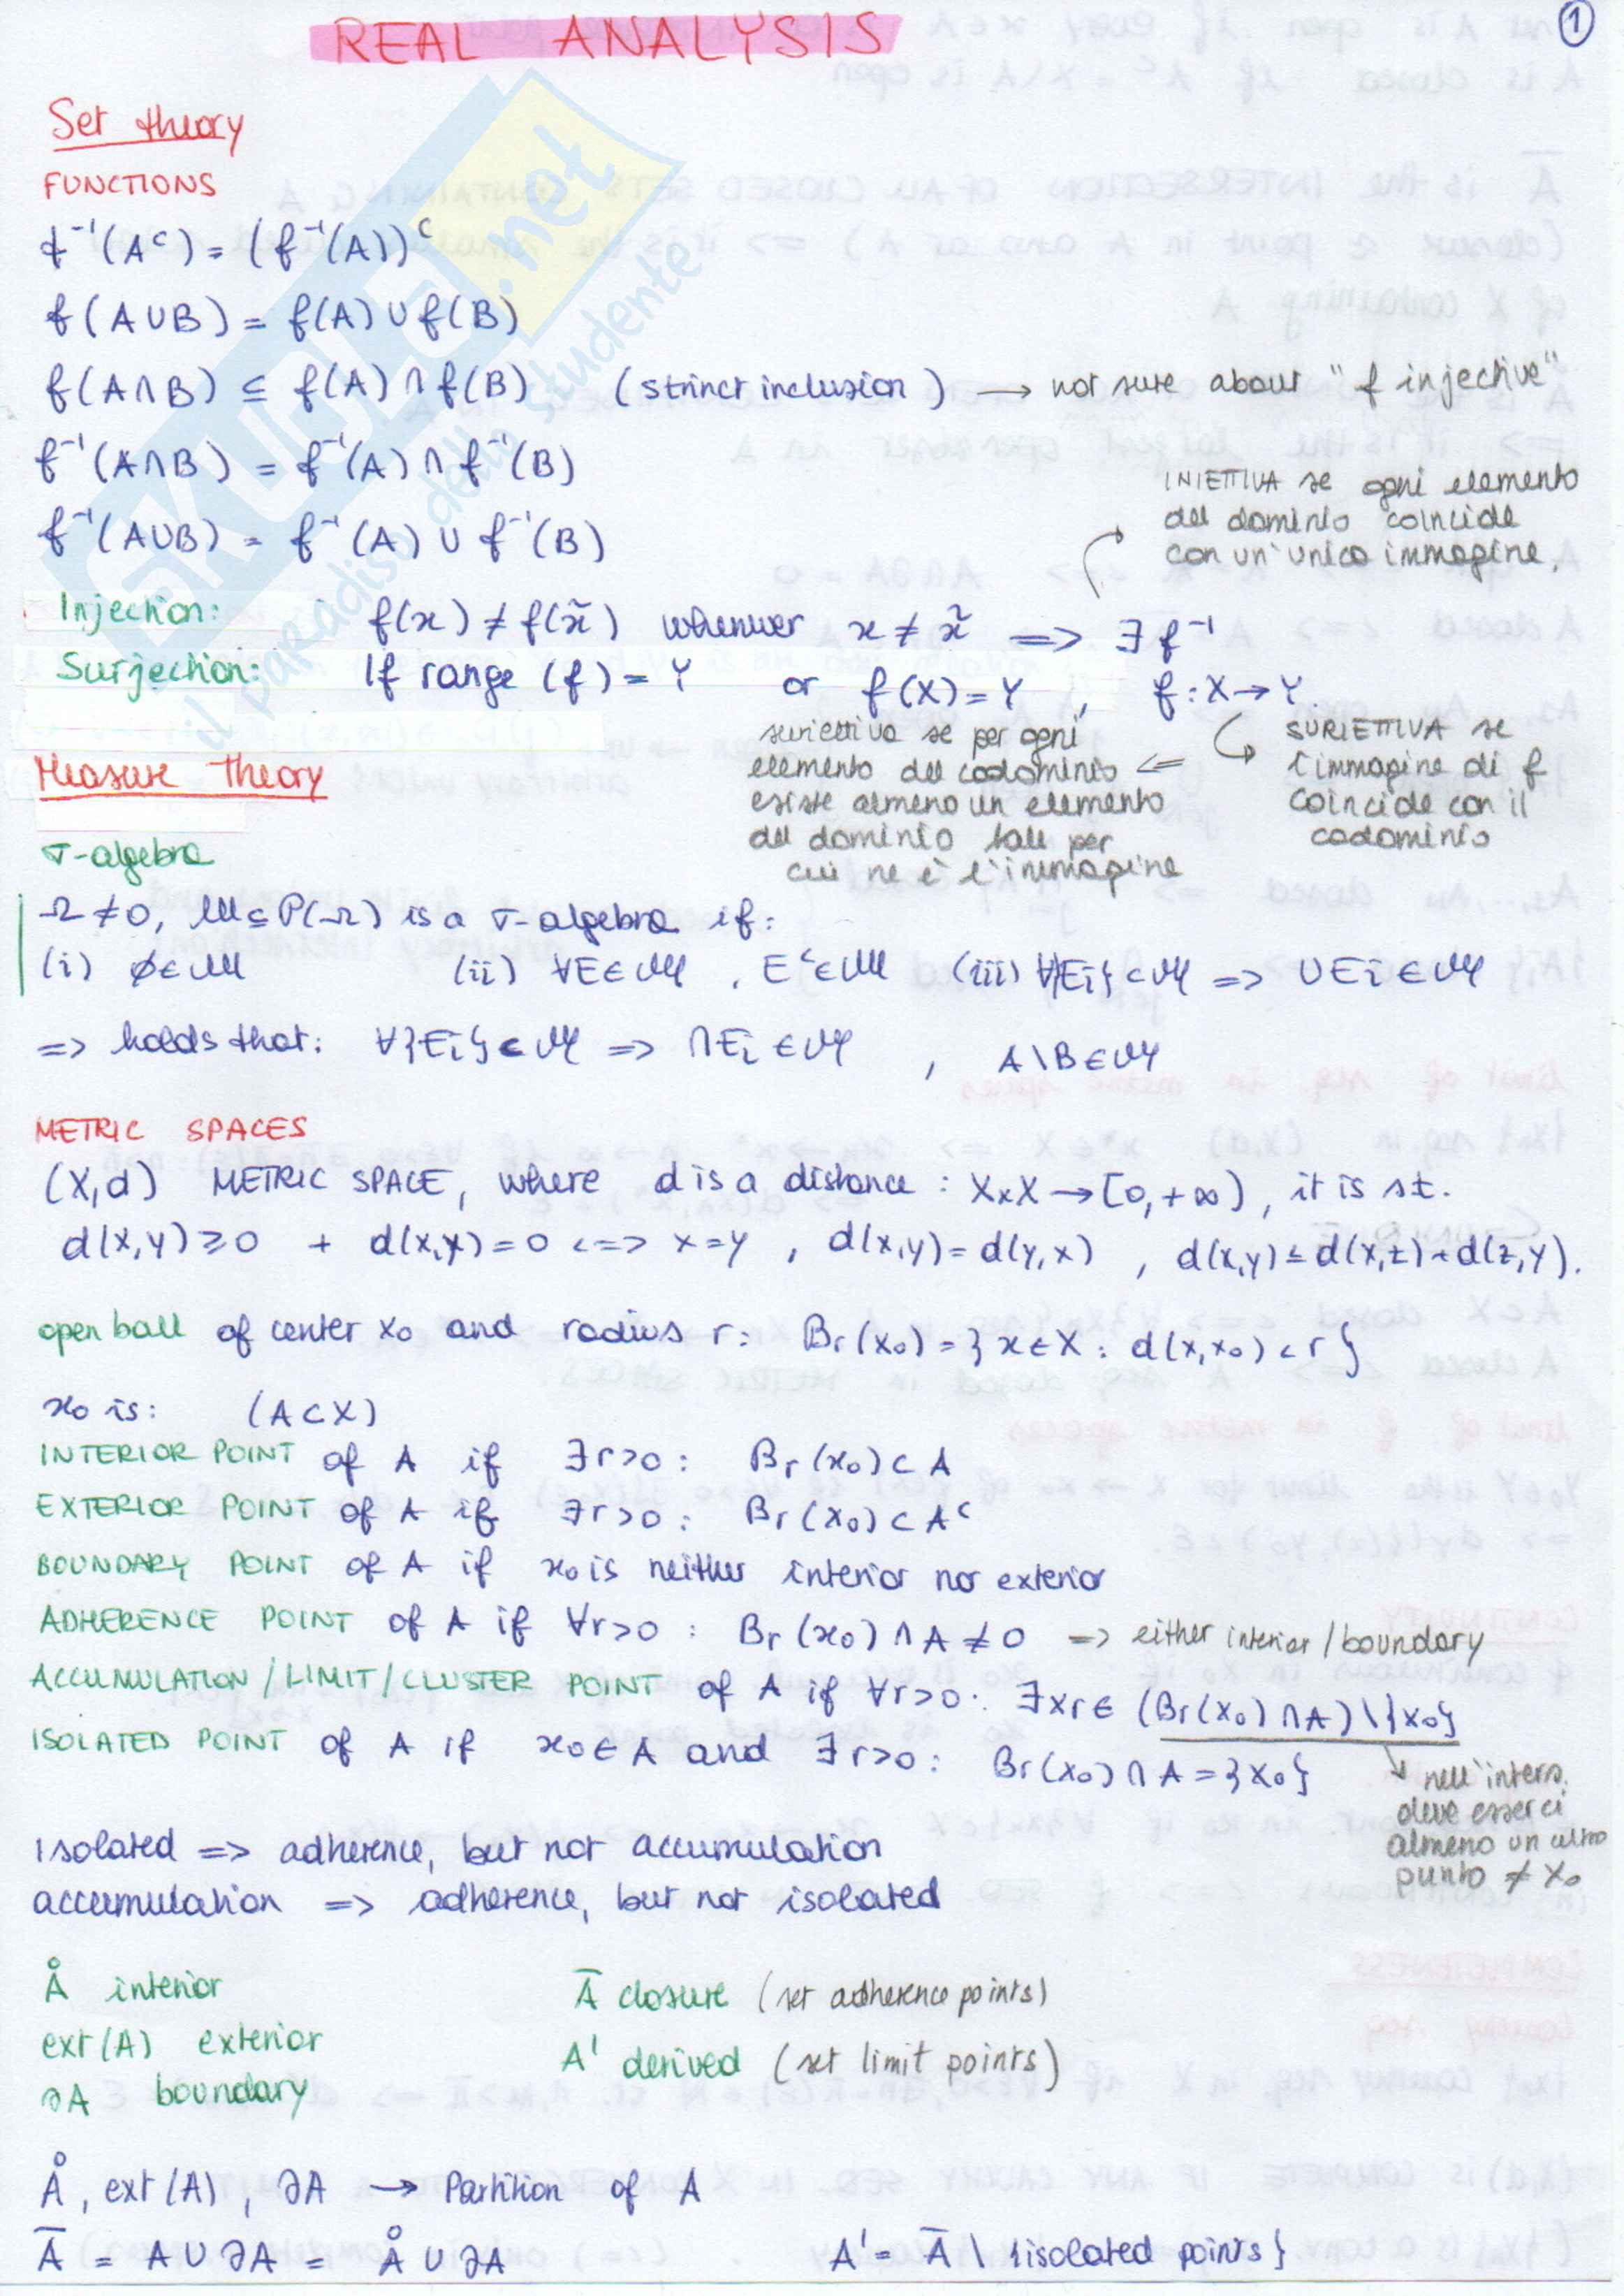 REAL ANALYSIS
1
Set theory
FUNCTIONS
f⁻¹(Aᶜ) = (f⁻¹(A))ᶜ
f(A∪B) = f(A)∪f(B)
f(A∩B) ⊆ f(A)∩f(B) (strinct inclusion) → not sure about "f injective"
f⁻¹(A∩B) = f⁻¹(A) ∩ f⁻¹(B)
f⁻¹(A∪B) = f⁻¹(A) ∪ f⁻¹(B)
INIETTIVA se ogni elemento
del dominio coincide
con un'unica immagine.
Injection: f(x) ≠ f(x̃) whenever x ≠ x̃ => ∃ f⁻¹
Surjection: If range (f) = Y or f(X)=Y, f: X→Y.
suriettiva se per ogni
elemento del codominio <=
esiste almeno un elemento
del dominio tale per
cui ne è l'immagine
SURIETTIVA se
l'immagine di f
coincide con il
codominio
Measure Theory
σ-algebra
Ω ≠ 0, M ⊆ P(Ω) is a σ-algebra if:
(i) ∅∈M (ii) ∀E∈M, Eᶜ∈M (iii) ∀{Ei}⊂M => ∪Ei∈M
=> holds that: ∀{Ei}⊂M => ∩Ei∈M, A\B∈M
METRIC SPACES
(X,d) METRIC SPACE, where d is a distance: X×X→[0,+∞), it is st.
d(x,y)≥0 + d(x,y)=0 <=> x=y, d(x,y)=d(y,x), d(x,y)≤d(x,z)+d(z,y).
open ball of center x₀ and radius r: Br(x₀) = {x∈X: d(x,x₀)<r}
x₀ is: (A⊂X)
INTERIOR POINT of A if ∃r>0: Br(x₀)⊂A
EXTERIOR POINT of A if ∃r>0: Br(x₀)⊂Aᶜ
BOUNDARY POINT of A if x₀ is neither interior nor exterior
ADHERENCE POINT of A if ∀r>0: Br(x₀)∩A≠0 => either interior/boundary
ACCUMULATION/LIMIT/CLUSTER POINT of A if ∀r>0: ∃xr∈(Br(x₀)∩A)\{x₀}
ISOLATED POINT of A if x₀∈A and ∃r>0: Br(x₀)∩A={x₀}
nell'inters.
deve esserci
almeno un altro
punto ≠ x₀
isolated => adherence, but not accumulation
accumulation => adherence, but not isolated
Å interior
A̅ closure (set adherence points)
ext(A) exterior
A' derived (set limit points)
∂A boundary
Å, ext(A), ∂A → Partition of A
A̅ = A∪∂A = Å∪∂A
A' = A̅ \ {isolated points}
SKUOLA.net
il paradiso dello studente